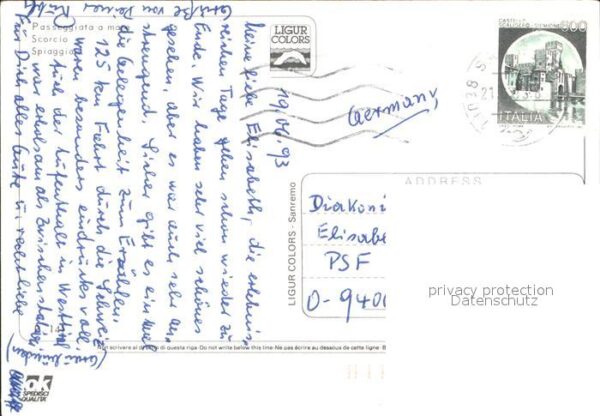 Passeggiata a ma
Scorcio
Spiaggi
LIGUR
COLORS
CASTELLO
SCALIGERO - SIRMIONE
600
ITALIA
21
Germany
19.06.93
Meine liebe Elisabeth, die erlebnis-
reichen Tage gehen schon wieder zu
Ende. Wir haben sehr viel schönes
gesehen, aber es war auch sehr an-
strengend. Sicher gibt es einmal
die Gelegenheit zum Erzählen.
125 km Fahrt durch die Schweiz
waren besonders eindrucksvoll.
Auch der Aufenthalt in
war erholsam als Zwischenstation
Für Dich alles Gute u. recht liebe
Grüße von
ADDRESS
Diakoni
Elisabe
PSF
O-9400
LIGUR COLORS - Sanremo
privacy protection
Datenschutz
Non scrivere al di sotto di questa riga - Do not write below this line - Ne pas écrire au dessous de cette ligne - B
ok
SPEDISCI
QUALITA'